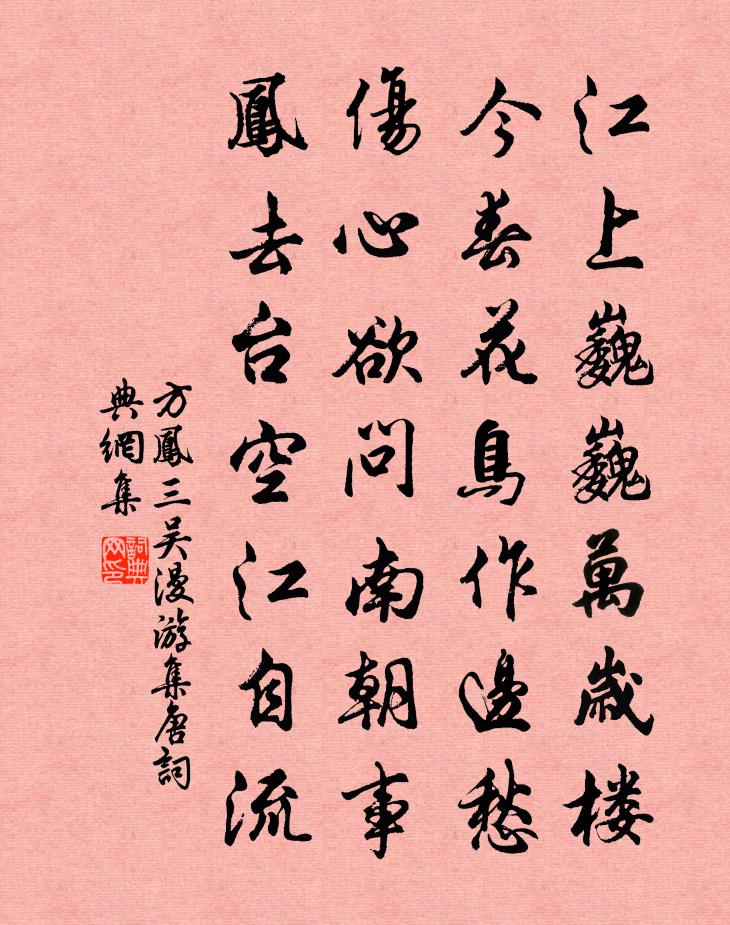 江上巍巍萬歲楼
今春花鳥作邊愁
傷心欲問南朝事
鳳去台空江自流
方鳳三吴漫游集唐詞
典網集
詞典网印